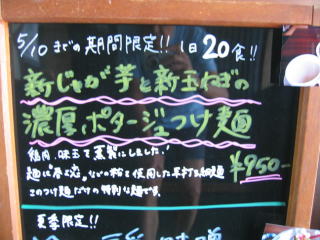 5/10までの期間限定!! 1日20食!!
新じゃが芋と新玉ねぎの
濃厚ポタージュつけ麺
鶏肉、味玉で燻製にしました!
¥950-
麺は春よ恋、
を使用した平打ち
このつけ麺だけの特別な麺です。
夏季限定!!